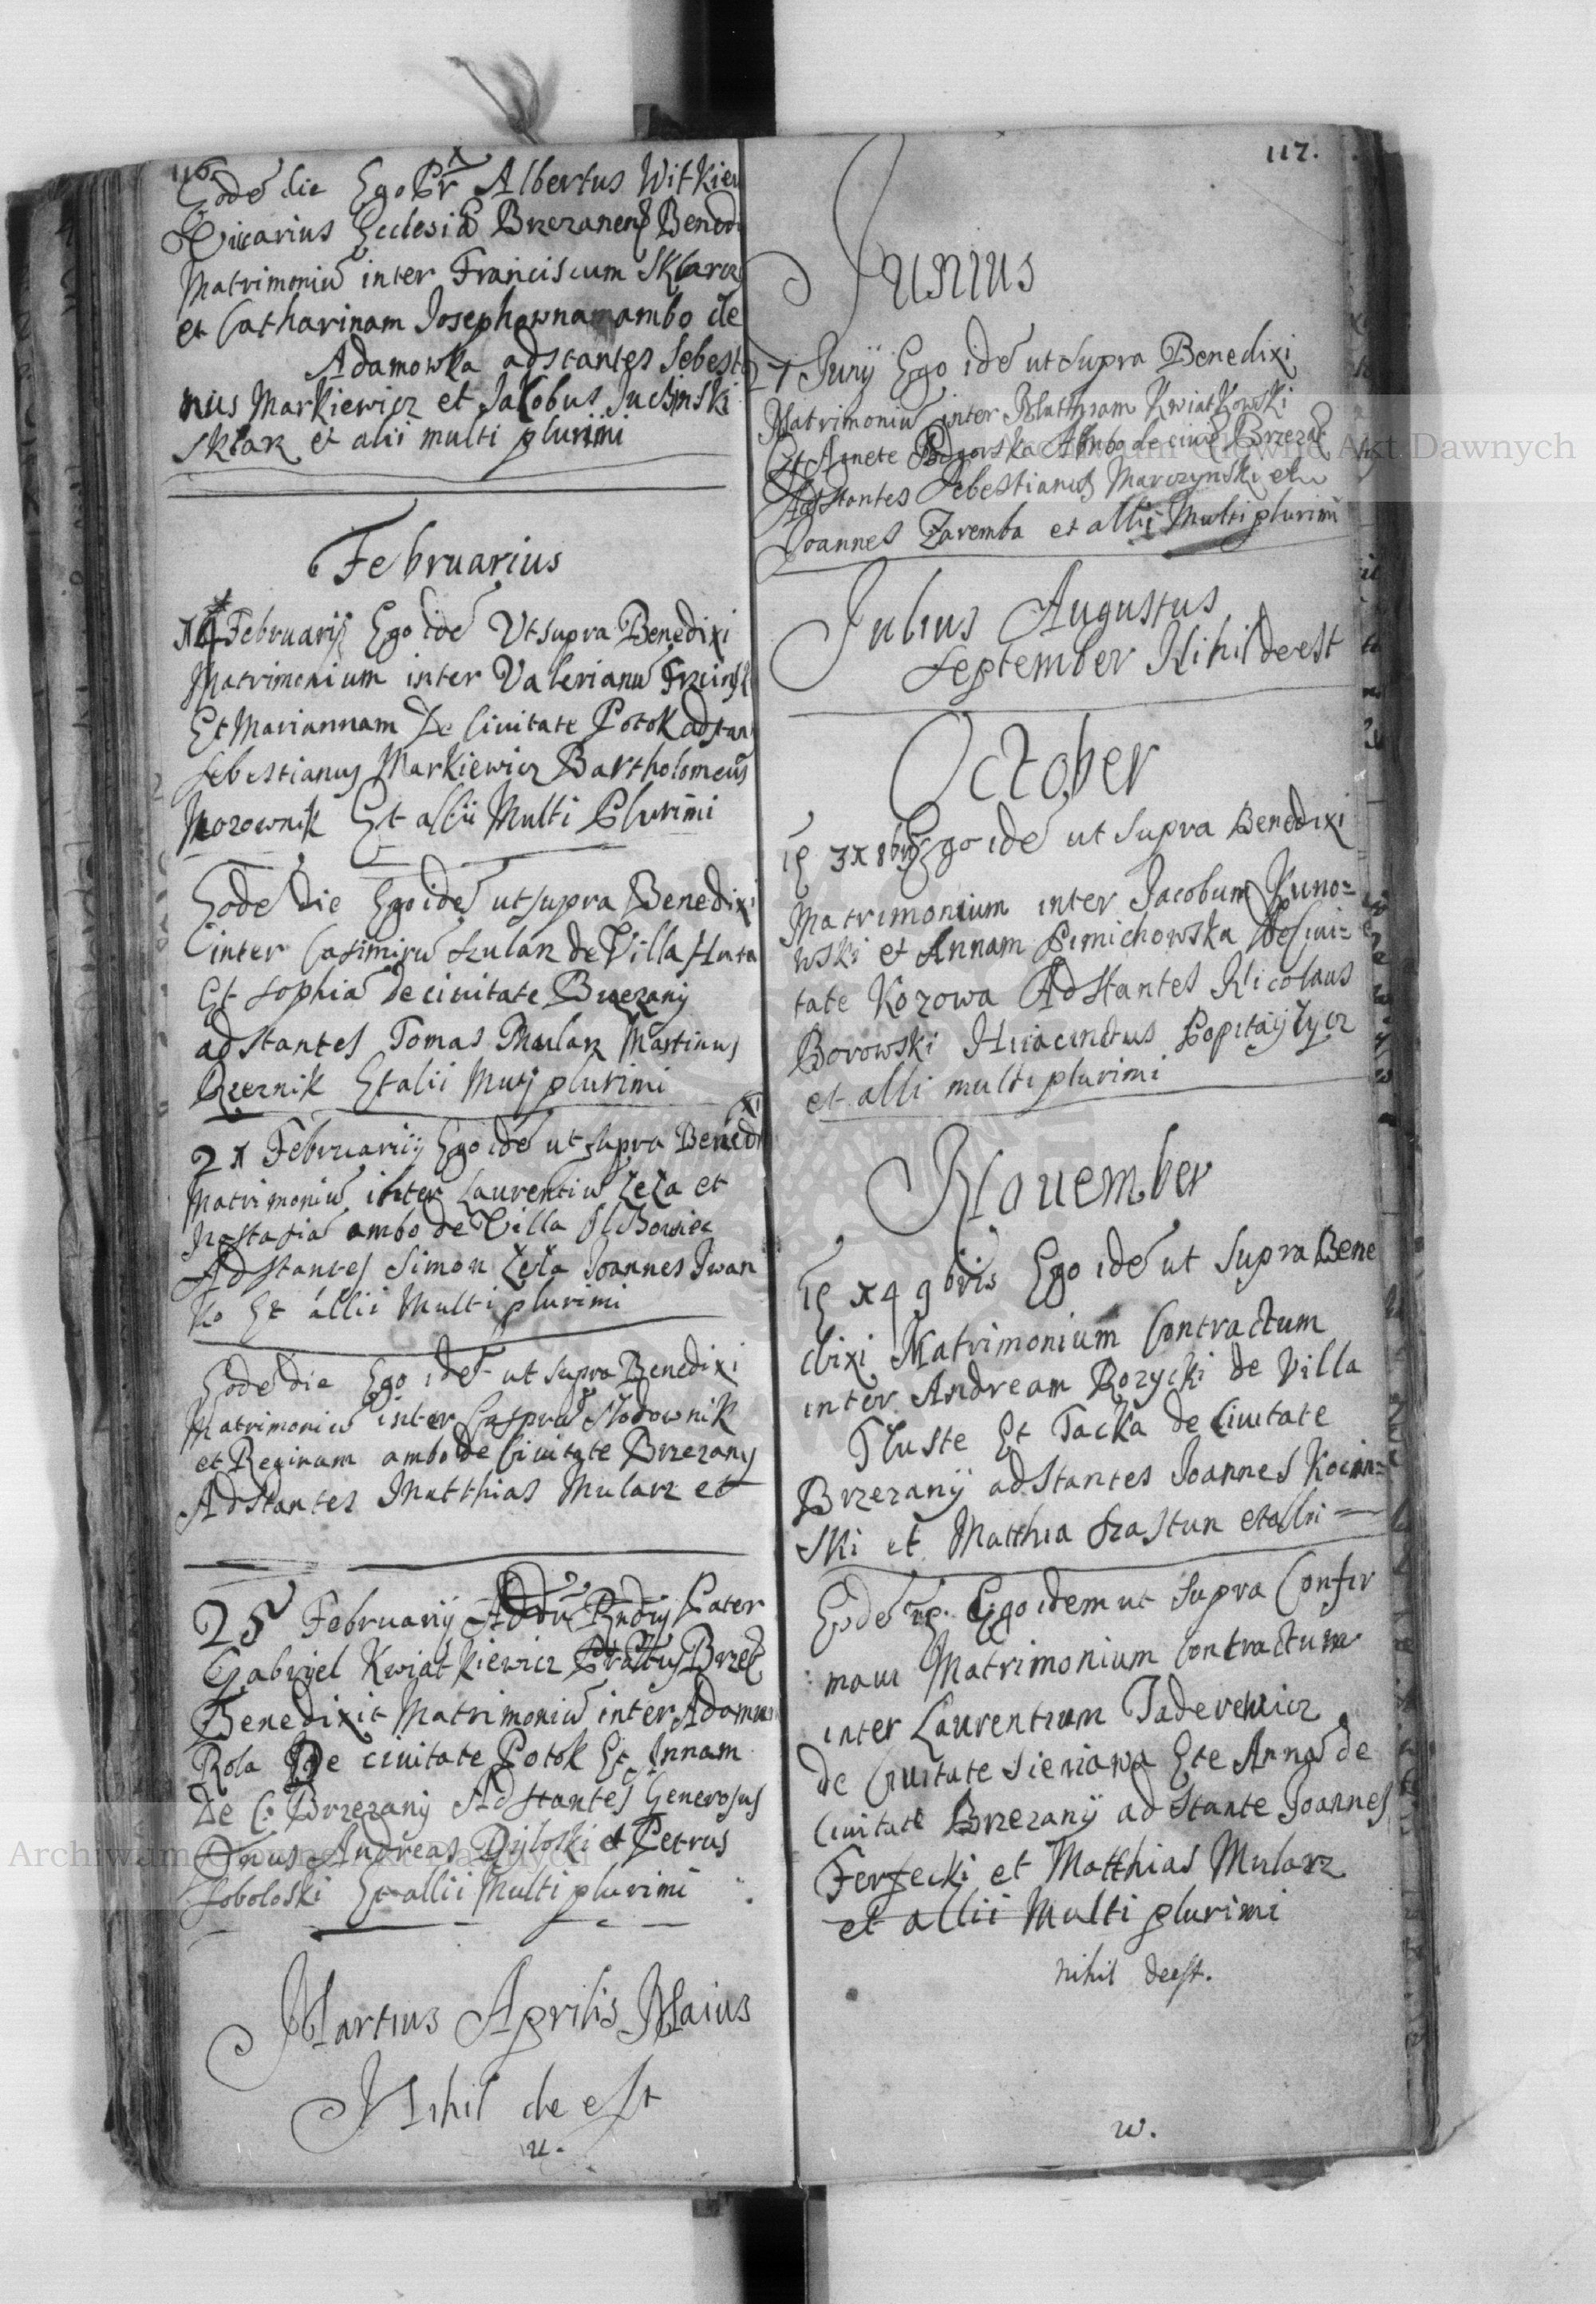 116.
Eodē die Ego Pr Albertus Witkiew
Vicarius Ecclesiæ Brzezanens Bened
Matrimoniū inter Franciscum Sklarz
et Catharinam Josephowna ambo de
Adamowka adstantes Sebesti
nus Markiewicz et Jakobus
Sklar et alii multi plurimi
Februarius
Februarij Ego idē Ut supra Benedixi
Matrimonium inter Valerianū
Et Mariannam De Ciuitate Potok adstan
Sebestianus Markiewicz Bartholomeus
Et allii Multi Plurimi
Eodē Die Ego idē ut supra Benedixi
inter Casimirū Szularz de Villa Huta
Et Sophiā de ciuitate Brzezany
adstantes Tomas Mularz Martinus
Rzeznik Et alii plurimi
2x Februarij Ego idē ut supra Benedi
xi
Matrimoniū inter Laurentiū Zeza et
ambo de Villa
Adstantes Simon Zeza Joannes Iwan
ko Et allii Multi plurimi
Eodē die Ego idē ut supra Benedixi
Matrimoniū inter Casprū Slodownik
et Reginam ambo de Ciuitate Brzezany
Adstantes Matthias Mularz et
25 Februarij Pater
Gabryel Kwiatkiewicz Brzez
Benedixit Matrimoniū inter Adamum
Rola De ciuitate Potok Et Annam
De C: Brzezany Adstantes Generosus
Dnus Andreas et Petrus
Soboloski Et allii Multi plurimi
Martius Aprilis Maius
Nihil de est
117.
Junius
Junij Ego idē ut supra Benedixi
Matrimoniū inter Kwiatkowski
Et Agnete Ambo de ciuē Brzezan
Adstantes Sebestianus Marczynski et
Joannes Zaremba et allii Multi plurimi
Julius Augustus
September Nihil deest
October
3x 8bris Ego idē ut supra Benedixi
Matrimonium inter Jacobum Kuno=
wski et Annam Pimichowska de Ciui-
tate Kozowa Adstantes Nicolaus
Borowski Hiiacinctus
et alli multi plurimi
Nouember
x4 9bris Ego idē ut supra Bene
dixi Matrimonium Contractum
inter Andream Rozycki de Villa
Tluste Et Tacka de Ciuitate
Brzezanij adstantes Joannes Kocin=
ski et Matthia Szastun et alii
Ego idem ut supra Confir
maui Matrimonium Contractum
inter Laurentium Taderewicz
de Ciuitate Sieniawa Ete Annā de
Ciuitate Brzezanij adstante Joannes
Ferfecki et Matthias Mularz
et allii Multi plurimi
nihil deest.
w.
Archiwum Główne Akt Dawnych
Archiwum Główne Akt Dawnych